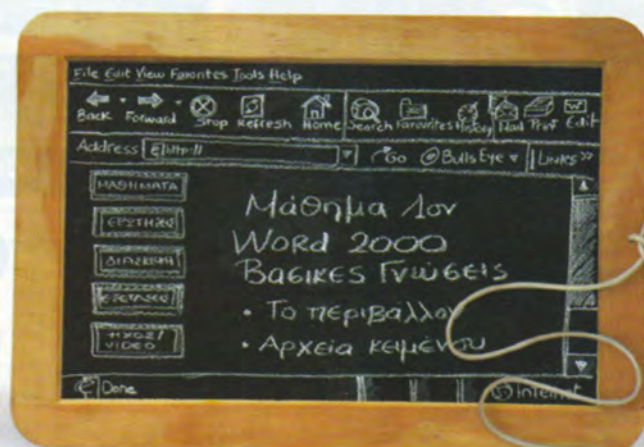 File Edit View Favorites Tools Help
Back Forward Stop Refresh Home Search Favourites History Mail Print Edit
Address http:// Go BullsEye Links »
ΜΑΘΗΜΑΤΑ
ΕΡΩΤΗΣΕΙΣ
ΕΞΕΤΑΣΕΙΣ
ΗΧΟΣ/
VIDEO
Μάθημα 1ον
Word 2000
Βασικες Γνώσεις
• Το περιβάλλον
• Αρχεία κειμένου
Done Internet